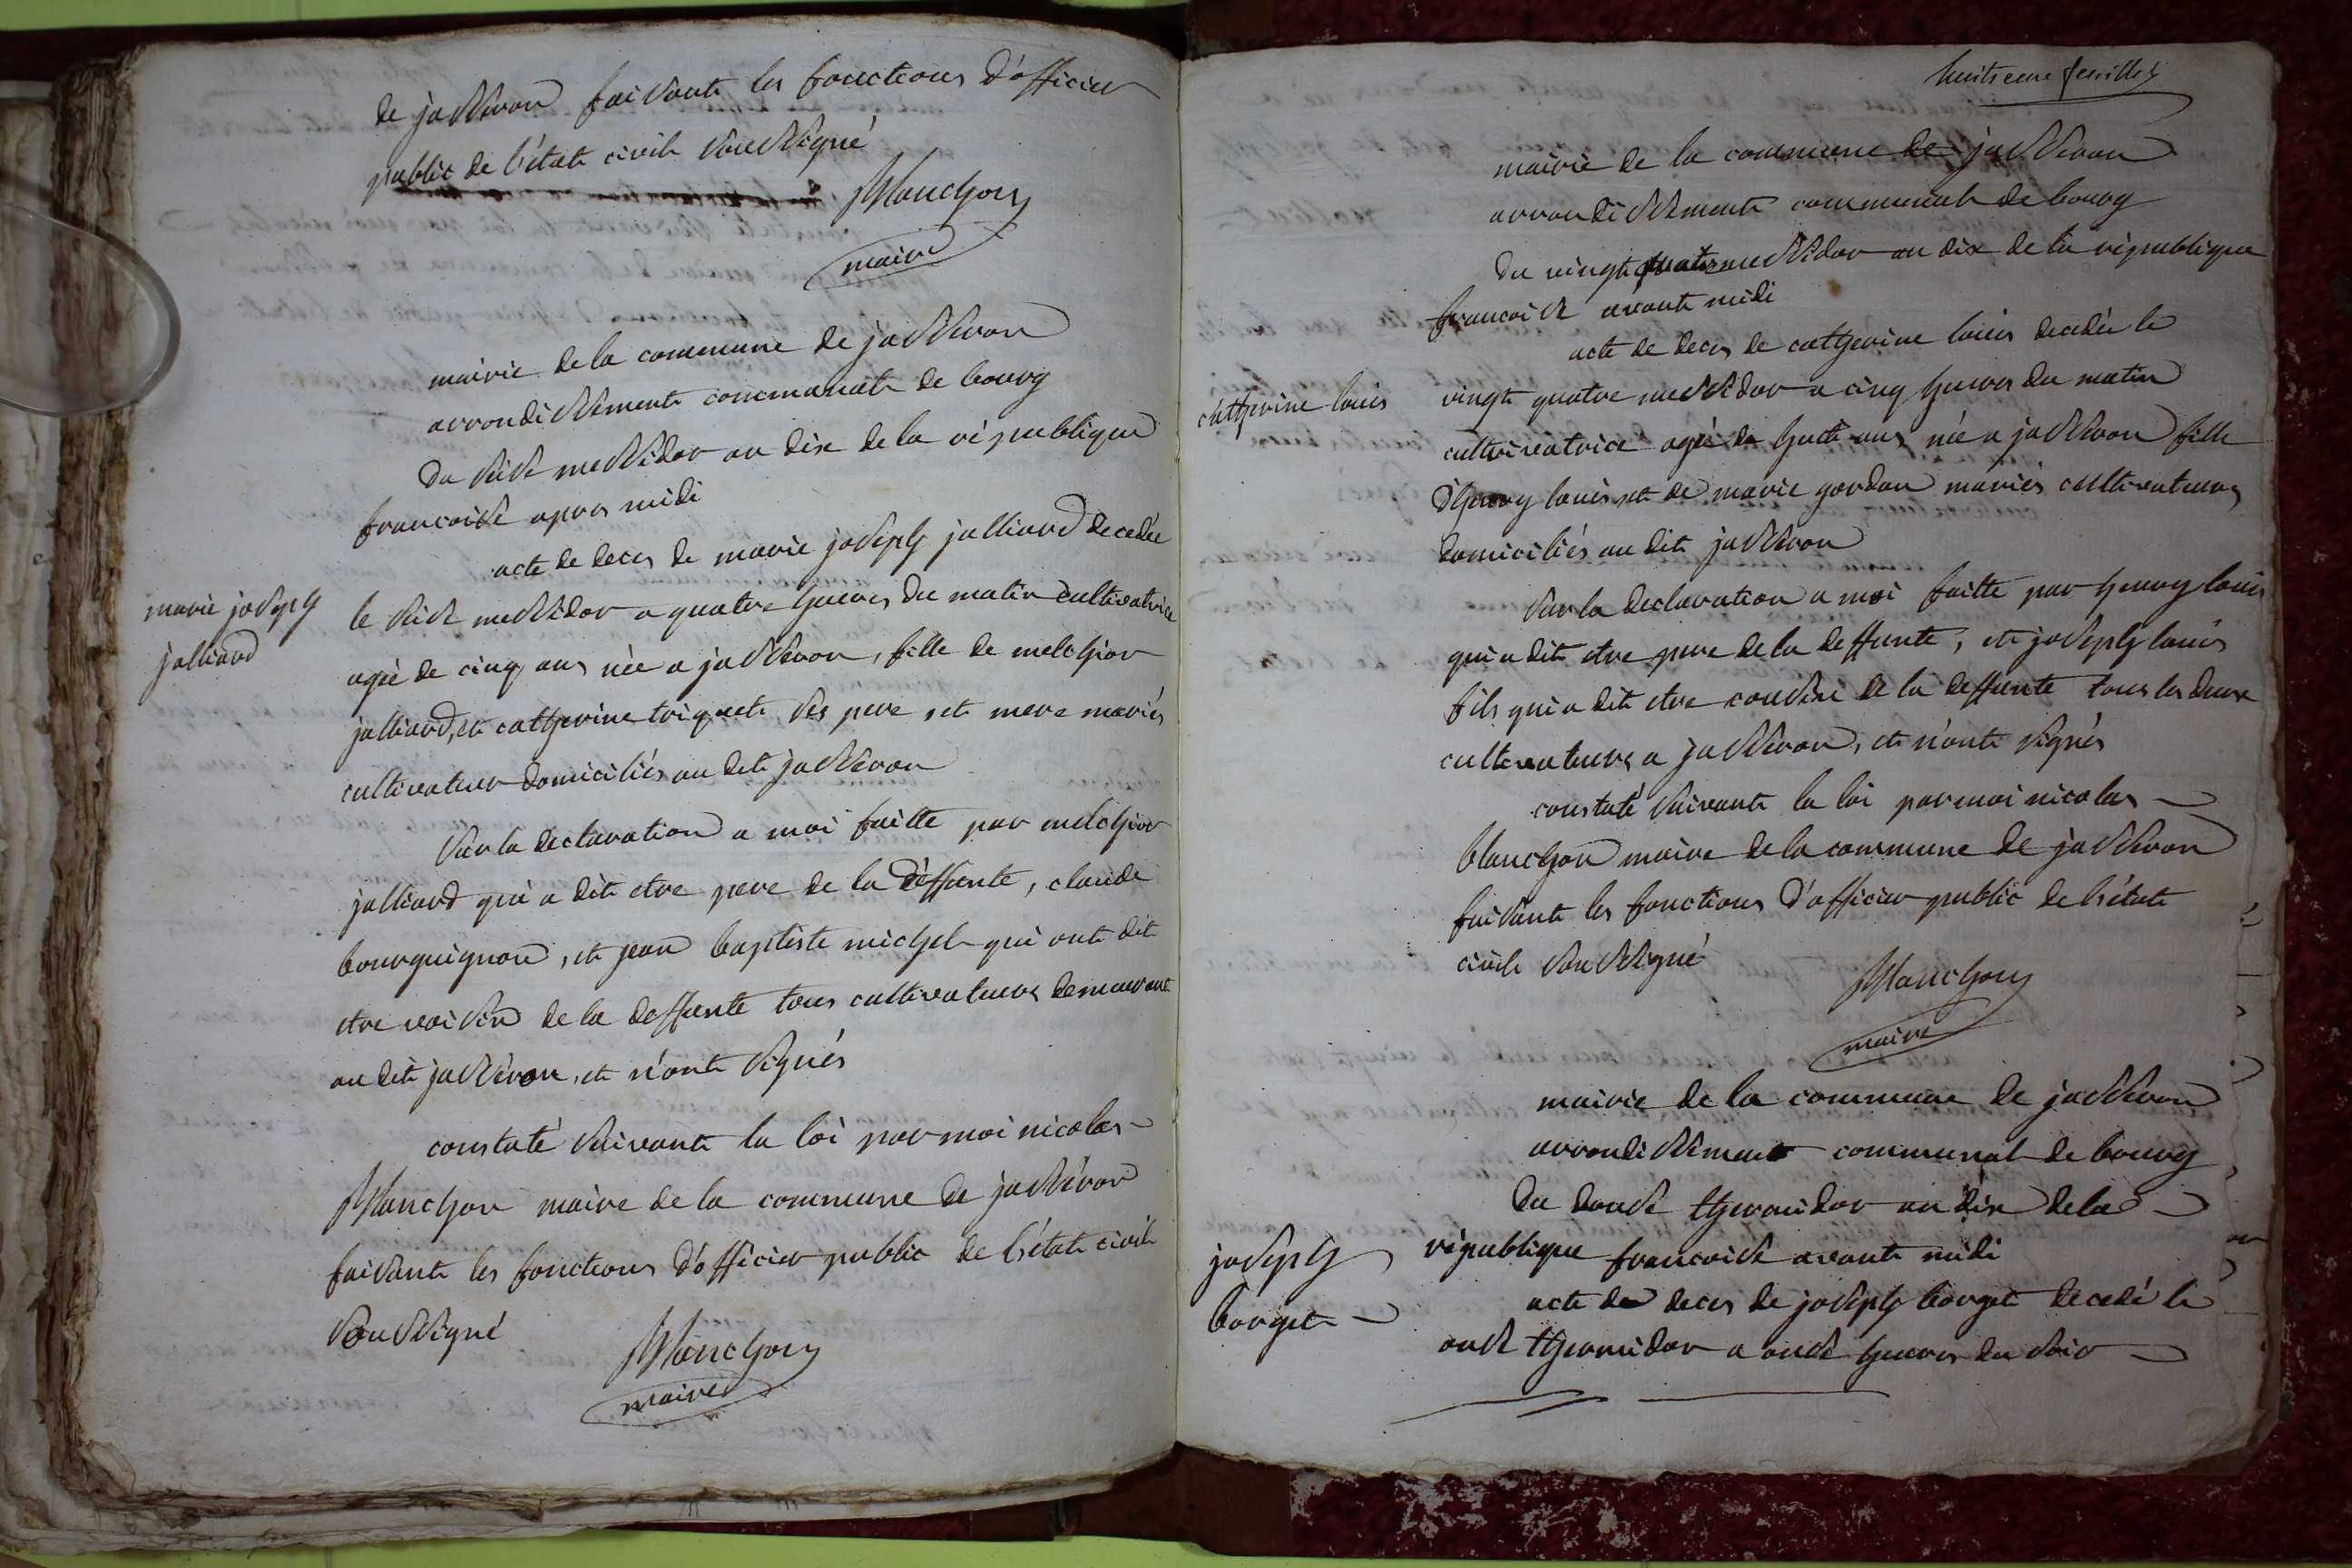 de jasseron faisant les fonctions d'officier
public de l'état civil soussigné
Blanchon
maire
mairie de la commune de jasseron
arrondissement communal de bourg
du seise messidor an dix de la république
francoise apres midi
acte de deces de marie joseph jalliard decedée
marie joseph
jalliard
le seise messidor a quatre heures du matin cultivatrice
agée de cinq ans née a jasseron, fille de melchior
jalliard, et catherine triquet ses pere et mere mariés
cultivateur domiciliés au dit jasseron
sur la declaration a moi faitte par melchior
jalliard qui a dit etre pere de la deffunte, claude
bourguignon, et jean baptiste michel qui ont dit
etre voisin de la deffunte tous cultivateurs demeurant
au dit jasseron, et n'ont signés
constaté suivant la loi par moi nicolas
Blanchon maire de la commune de jasseron
faisant les fonctions d'officier public de l'état civil
soussigné
Blanchon
maire
huitieme feuillet
mairie de la commune de jasseron
arrondissement communal de bourg
du vingt quatre messidor an dix de la république
francoise avant midi
acte de deces de catherine louis decedée le
catherine louis
vingt quatre messidor a cinq heures du matin
cultivatrice agée de huit ans née a jasseron fille
d'henry louis et de marie gordan mariés cultivateurs
domiciliés au dit jasseron
sur la declaration a moi faitte par henry louis
qui a dit etre pere de la deffunte, et joseph louis
fils qui a dit etre cousin de la deffunte tous les deux
cultivateurs a jasseron, et n'ont signés
constaté suivant la loi par moi nicolas
blanchon maire de la commune de jasseron
faisant les fonctions d'officier public de l'état
civil soussigné
Blanchon
maire
mairie de la commune de jasseron
arrondissement communal de bourg
du douse thermidor an dix de la
république francoise avant midi
joseph
borget
acte de deces de joseph borget decedé le
onse thermidor a onse heures du soir